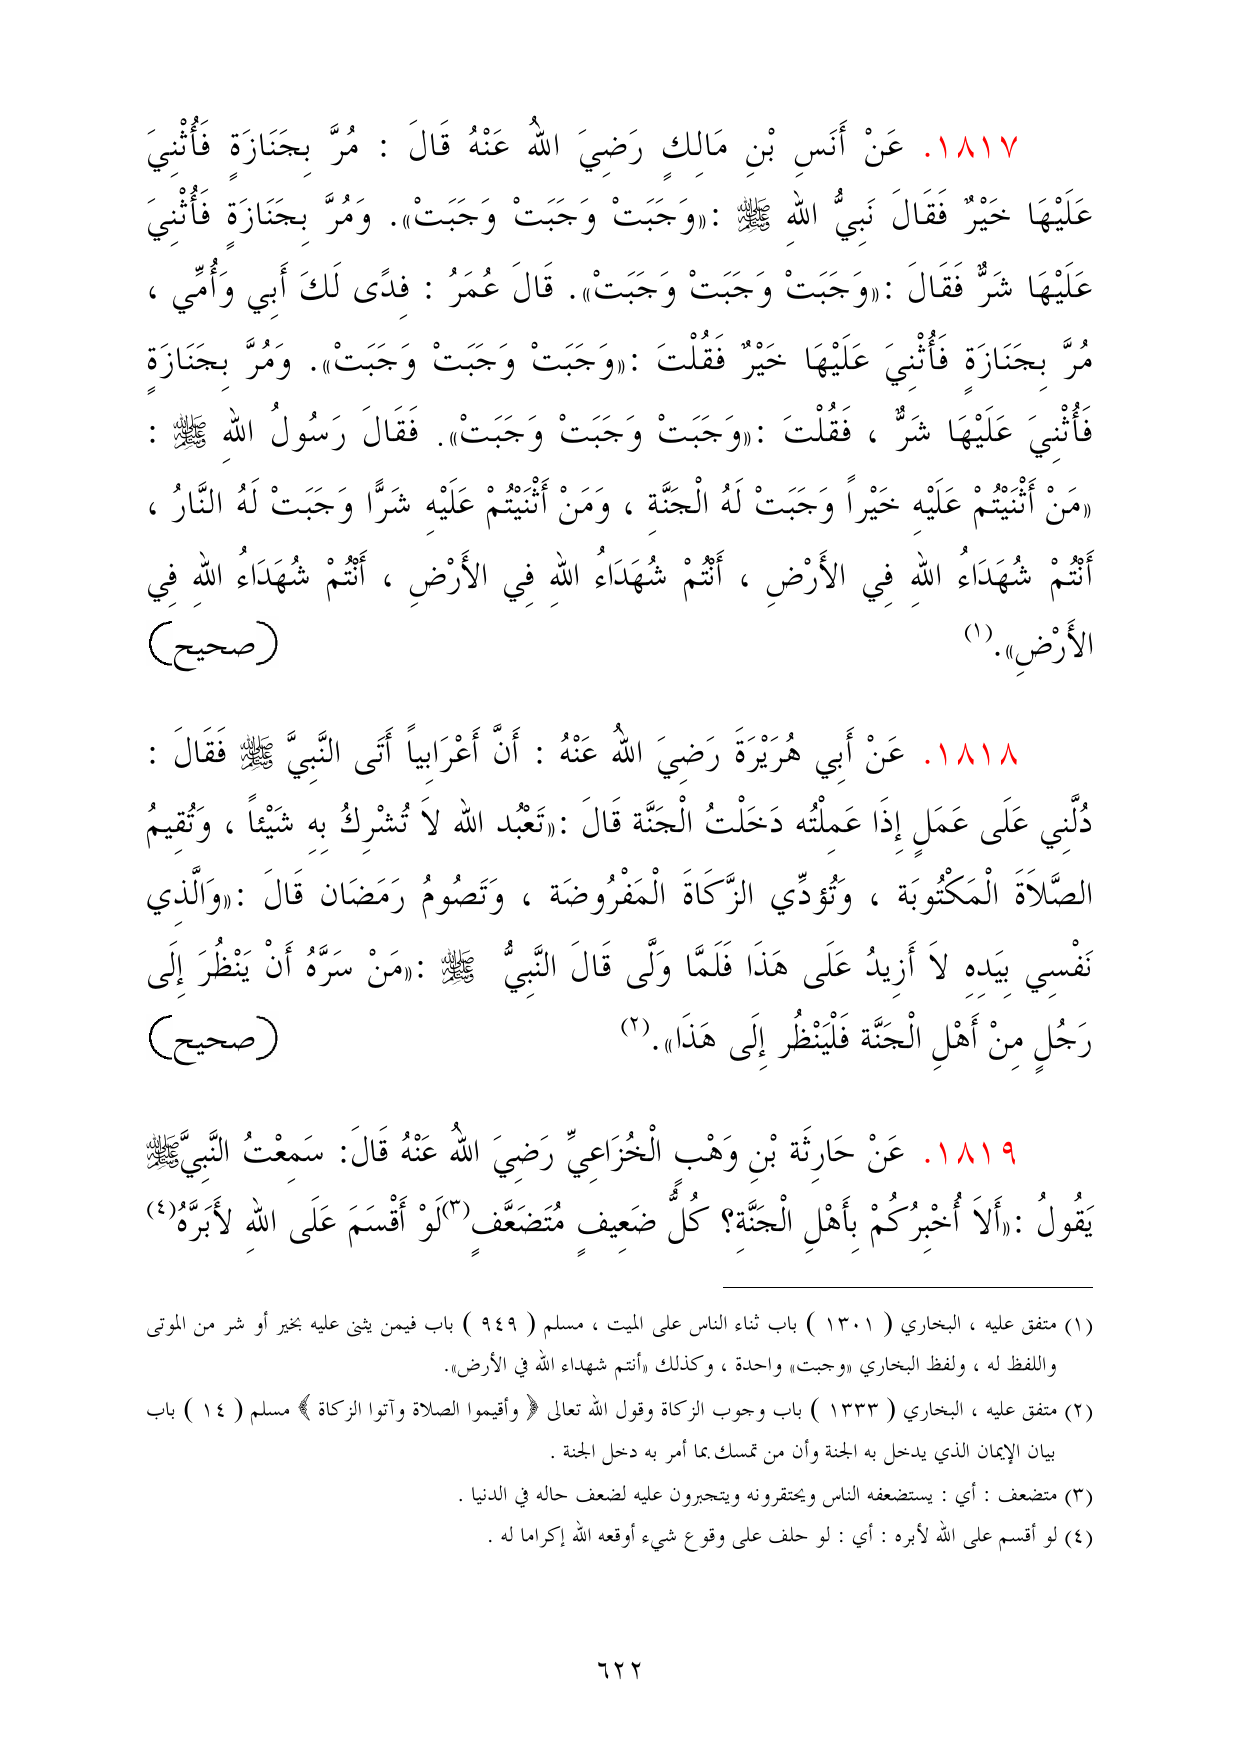 ١٨١٧. عَنْ أَنَسِ بْنِ مَالِكٍ رَضِيَ اللهُ عَنْهُ قَالَ : مُرَّ بِجَنَازَةٍ فَأُثْنِيَ
عَلَيْهَا خَيْرٌ فَقَالَ نَبِيُّ اللهِ ﷺ :«وَجَبَتْ وَجَبَتْ وَجَبَتْ». وَمُرَّ بِجَنَازَةٍ فَأُثْنِيَ
عَلَيْهَا شَرٌّ فَقَالَ :«وَجَبَتْ وَجَبَتْ وَجَبَتْ». قَالَ عُمَرُ : فِدًى لَكَ أَبِي وَأُمِّي ،
مُرَّ بِجَنَازَةٍ فَأُثْنِيَ عَلَيْهَا خَيْرٌ فَقُلْتَ :«وَجَبَتْ وَجَبَتْ وَجَبَتْ». وَمُرَّ بِجَنَازَةٍ
فَأُثْنِيَ عَلَيْهَا شَرٌّ ، فَقُلْتَ :«وَجَبَتْ وَجَبَتْ وَجَبَتْ». فَقَالَ رَسُولُ اللهِ ﷺ :
«مَنْ أَثْنَيْتُمْ عَلَيْهِ خَيْراً وَجَبَتْ لَهُ الْجَنَّة ، وَمَنْ أَثْنَيْتُمْ عَلَيْهِ شَرًّا وَجَبَتْ لَهُ النَّارُ ،
أَنْتُمْ شُهَدَاءُ اللهِ فِي الأَرْضِ ، أَنْتُمْ شُهَدَاءُ اللهِ فِي الأَرْضِ ، أَنْتُمْ شُهَدَاءُ اللهِ فِي
الأَرْضِ».(١) (صحيح)
١٨١٨. عَنْ أَبِي هُرَيْرَةَ رَضِيَ اللهُ عَنْهُ : أَنَّ أَعْرَابِياً أَتَى النَّبِيَّ ﷺ فَقَالَ :
دُلَّنِي عَلَى عَمَلٍ إِذَا عَمِلْتُه دَخَلْتُ الْجَنَّة قَالَ :«تَعْبُد الله لاَ تُشْرِكُ بِهِ شَيْئاً ، وَتُقِيمُ
الصَّلاَةَ الْمَكْتُوبَة ، وَتُؤدِّي الزَّكَاةَ الْمَفْرُوضَة ، وَتَصُومُ رَمَضَان قَالَ :«وَالَّذِي
نَفْسِي بِيَدِهِ لاَ أَزِيدُ عَلَى هَذَا فَلَمَّا وَلَّى قَالَ النَّبِيُّ ﷺ :«مَنْ سَرَّهُ أَنْ يَنْظُرَ إِلَى
رَجُلٍ مِنْ أَهْلِ الْجَنَّة فَلْيَنْظُر إِلَى هَذَا».(٢) (صحيح)
١٨١٩. عَنْ حَارِثَة بْنِ وَهْبٍ الْخُزَاعِيِّ رَضِيَ اللهُ عَنْهُ قَالَ: سَمِعْتُ النَّبِيَّ ﷺ
يَقُولُ :«أَلاَ أُخْبِرُكُمْ بِأَهْلِ الْجَنَّةِ؟ كُلُّ ضَعِيفٍ مُتَضَعَّفٍ(٣)لَوْ أَقْسَمَ عَلَى اللهِ لأَبَرَّهُ(٤)
(١) متفق عليه ، البخاري ( ١٣٠١ ) باب ثناء الناس على الميت ، مسلم ( ٩٤٩ ) باب فيمن يثنى عليه بخير أو شر من الموتى
واللفظ له ، ولفظ البخاري «وجبت» واحدة ، وكذلك «أنتم شهداء الله في الأرض».
(٢) متفق عليه ، البخاري ( ١٣٣٣ ) باب وجوب الزكاة وقول الله تعالى ﴿ وأقيموا الصلاة وآتوا الزكاة ﴾ مسلم ( ١٤ ) باب
بيان الإيمان الذي يدخل به الجنة وأن من تمسك بما أمر به دخل الجنة .
(٣) متضعف : أي : يستضعفه الناس ويحتقرونه ويتجبرون عليه لضعف حاله في الدنيا .
(٤) لو أقسم على الله لأبره : أي : لو حلف على وقوع شيء أوقعه الله إكراما له .
٦٢٢